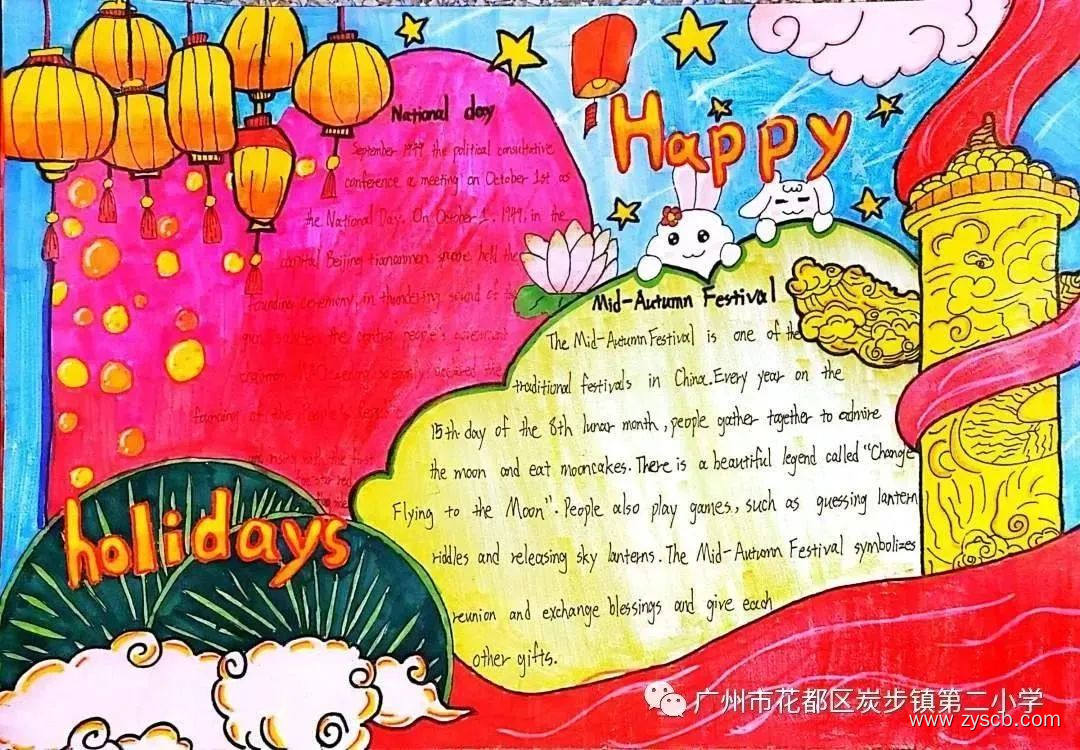 Happy
holidays
National day
September 1949 the political consultative
conference a meeting on October 1st as
the National Day. On October 1, 1949, in the
capital Beijing tiananmen square held the
founding ceremony, in thundering sound of
the central people's government
founding of the People's
with the first
Mid-Autumn Festival
The Mid-Autumn Festival is one of the
traditional festivals in China. Every year on the
15th day of the 8th lunar month, people gather together to admire
the moon and eat mooncakes. There is a beautiful legend called "Change
Flying to the Moon". People also play games, such as guessing lantern
riddles and releasing sky lanterns. The Mid-Autumn Festival symbolizes
reunion and exchange blessings and give each
other gifts.
广州市花都区炭步镇第二小学
www.zyscb.com